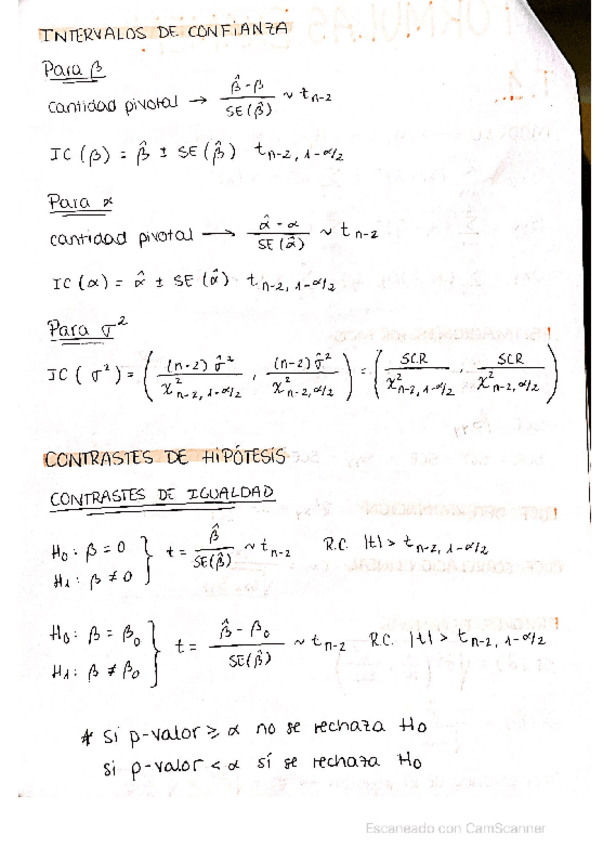 INTERVALOS DE CONFIANZA
Para β
cantidad pivotal → (β̂ - β) / SE(β̂) ~ t n-2
IC(β) = β̂ ± SE(β̂) t n-2, 1-α/2
Para α
cantidad pivotal → (α̂ - α) / SE(α̂) ~ t n-2
IC(α) = α̂ ± SE(α̂) t n-2, 1-α/2
Para σ²
IC(σ²) = ( (n-2)σ̂² / χ² n-2, 1-α/2 , (n-2)σ̂² / χ² n-2, α/2 ) = ( SCR / χ² n-2, 1-α/2 , SCR / χ² n-2, α/2 )
CONTRASTES DE HIPÓTESIS
CONTRASTES DE IGUALDAD
H₀: β = 0 } t = β̂ / SE(β̂) ~ t n-2 R.C. |t| > t n-2, 1-α/2
H₁: β ≠ 0
H₀: β = β₀ } t = (β̂ - β₀) / SE(β̂) ~ t n-2 R.C. |t| > t n-2, 1-α/2
H₁: β ≠ β₀
* Si p-valor ≥ α no se rechaza H₀
si p-valor < α sí se rechaza H₀
Escaneado con CamScanner